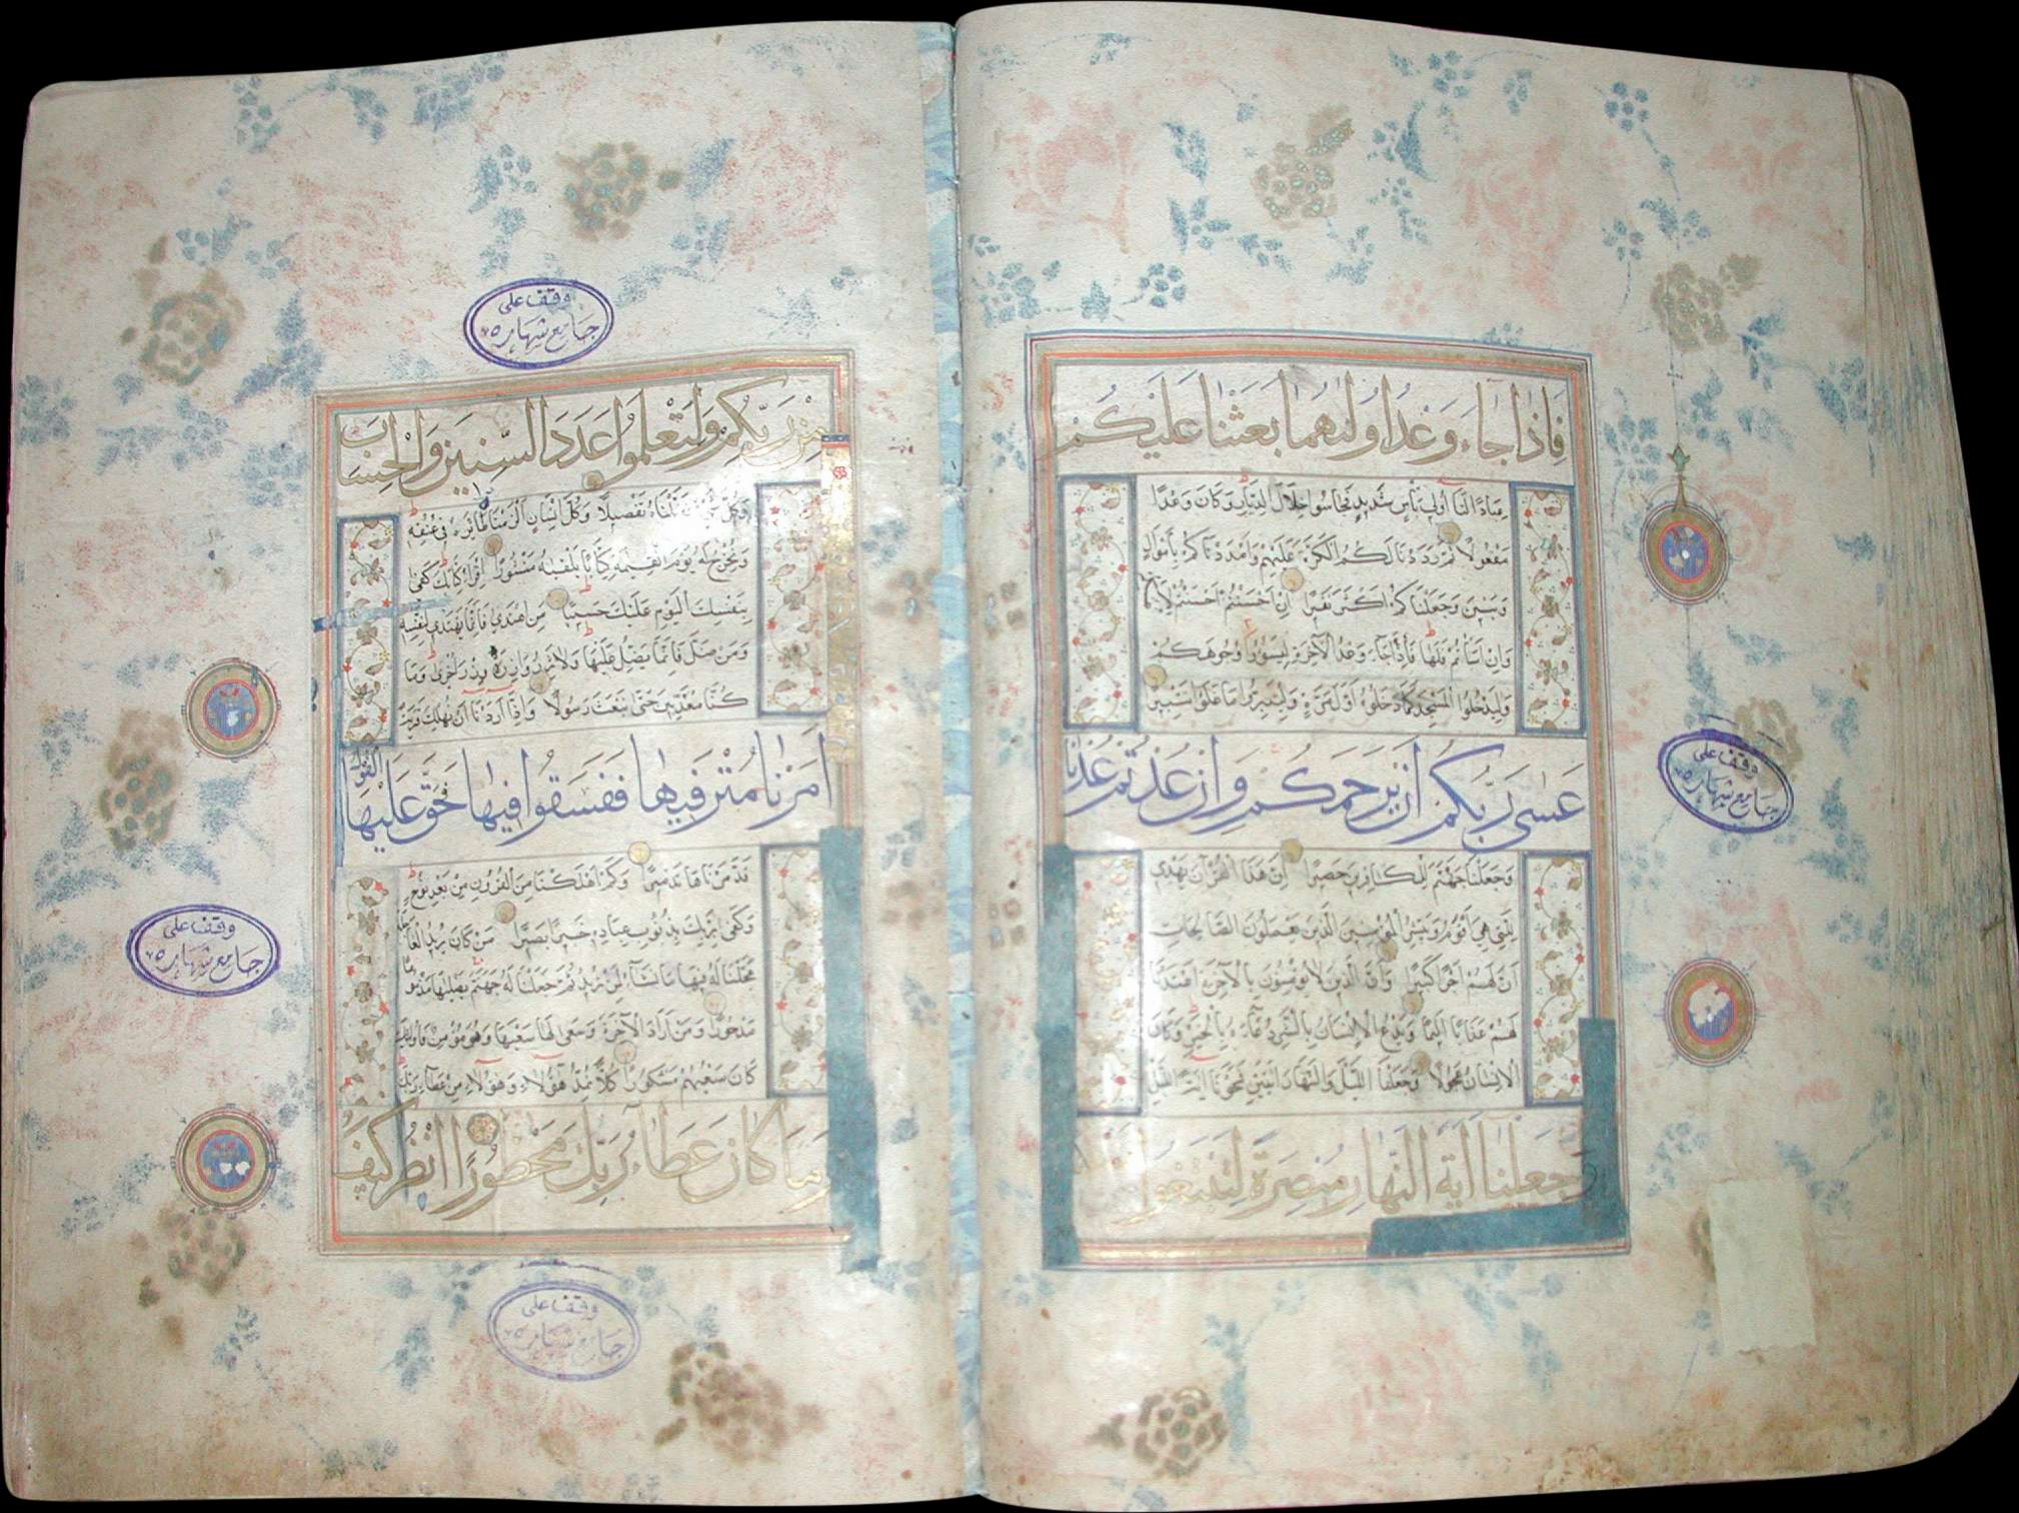 فَاِذَا جَاءَ وَعْدُ اُولٰهُمَا بَعَثْنَا عَلَيْكُمْ
عِبَادًا لَنَا اُولِي بَأْسٍ شَدِيدٍ فَجَاسُوا خِلَالَ الدِّيَارِ وَكَانَ وَعْدًا
مَفْعُولًا ثُمَّ رَدَدْنَا لَكُمُ الْكَرَّةَ عَلَيْهِمْ وَاَمْدَدْنَاكُمْ بِاَمْوَالٍ
وَبَنِينَ وَجَعَلْنَاكُمْ اَكْثَرَ نَفِيرًا اِنْ اَحْسَنْتُمْ اَحْسَنْتُمْ لِاَنْفُسِكُمْ
وَاِنْ اَسَأْتُمْ فَلَهَا فَاِذَا جَاءَ وَعْدُ الْآخِرَةِ لِيَسُوؤُا وُجُوهَكُمْ
وَلِيَدْخُلُوا الْمَسْجِدَ كَمَا دَخَلُوهُ اَوَّلَ مَرَّةٍ وَلِيُتَبِّرُوا مَا عَلَوْا تَتْبِيرًا
عَسٰى رَبُّكُمْ اَنْ يَرْحَمَكُمْ وَاِنْ عُدْتُمْ عُدْنَا
وَجَعَلْنَا جَهَنَّمَ لِلْكَافِرِينَ حَصِيرًا اِنَّ هٰذَا الْقُرْآنَ يَهْدِي
لِلَّتِي هِيَ اَقْوَمُ وَيُبَشِّرُ الْمُؤْمِنِينَ الَّذِينَ يَعْمَلُونَ الصَّالِحَاتِ
اَنَّ لَهُمْ اَجْرًا كَبِيرًا وَاَنَّ الَّذِينَ لَا يُؤْمِنُونَ بِالْآخِرَةِ اَعْتَدْنَا
لَهُمْ عَذَابًا اَلِيمًا وَيَدْعُ الْاِنْسَانُ بِالشَّرِّ دُعَاءَهُ بِالْخَيْرِ وَكَانَ
الْاِنْسَانُ عَجُولًا وَجَعَلْنَا اللَّيْلَ وَالنَّهَارَ اٰيَتَيْنِ فَمَحَوْنَا اٰيَةَ اللَّيْلِ
وَجَعَلْنَا اٰيَةَ النَّهَارِ مُبْصِرَةً لِتَبْتَغُوا
وقف على
جامع شهاره
مِنْ رَبِّكُمْ وَلِتَعْلَمُوا عَدَدَ السِّنِينَ وَالْحِسَابَ
وَكُلَّ شَيْءٍ فَصَّلْنَاهُ تَفْصِيلًا وَكُلَّ اِنْسَانٍ اَلْزَمْنَاهُ طَائِرَهُ فِي عُنُقِهِ
وَنُخْرِجُ لَهُ يَوْمَ الْقِيٰمَةِ كِتَابًا يَلْقٰيهُ مَنْشُورًا اِقْرَأْ كِتَابَكَ كَفٰى
بِنَفْسِكَ الْيَوْمَ عَلَيْكَ حَسِيبًا مَنِ اهْتَدٰى فَاِنَّمَا يَهْتَدِي لِنَفْسِهِ
وَمَنْ ضَلَّ فَاِنَّمَا يَضِلُّ عَلَيْهَا وَلَا تَزِرُ وَازِرَةٌ وِزْرَ اُخْرٰى وَمَا
كُنَّا مُعَذِّبِينَ حَتّٰى نَبْعَثَ رَسُولًا وَاِذَا اَرَدْنَا اَنْ نُهْلِكَ قَرْيَةً
اَمَرْنَا مُتْرَفِيهَا فَفَسَقُوا فِيهَا فَحَقَّ عَلَيْهَا الْقَوْلُ
فَدَمَّرْنَاهَا تَدْمِيرًا وَكَمْ اَهْلَكْنَا مِنَ الْقُرُونِ مِنْ بَعْدِ نُوحٍ
وَكَفٰى بِرَبِّكَ بِذُنُوبِ عِبَادِهِ خَبِيرًا بَصِيرًا مَنْ كَانَ يُرِيدُ الْعَاجِلَةَ
عَجَّلْنَا لَهُ فِيهَا مَا نَشَاءُ لِمَنْ نُرِيدُ ثُمَّ جَعَلْنَا لَهُ جَهَنَّمَ يَصْلٰيهَا مَذْمُومًا
مَدْحُورًا وَمَنْ اَرَادَ الْآخِرَةَ وَسَعٰى لَهَا سَعْيَهَا وَهُوَ مُؤْمِنٌ فَاُولٰئِكَ
كَانَ سَعْيُهُمْ مَشْكُورًا كُلًّا نُمِدُّ هٰؤُلَاءِ وَهٰؤُلَاءِ مِنْ عَطَاءِ رَبِّكَ
وَمَا كَانَ عَطَاءُ رَبِّكَ مَحْظُورًا اُنْظُرْ كَيْفَ
وقف على
جامع شهاره
وقف على
جامع شهاره
وقف على
جامع شهاره